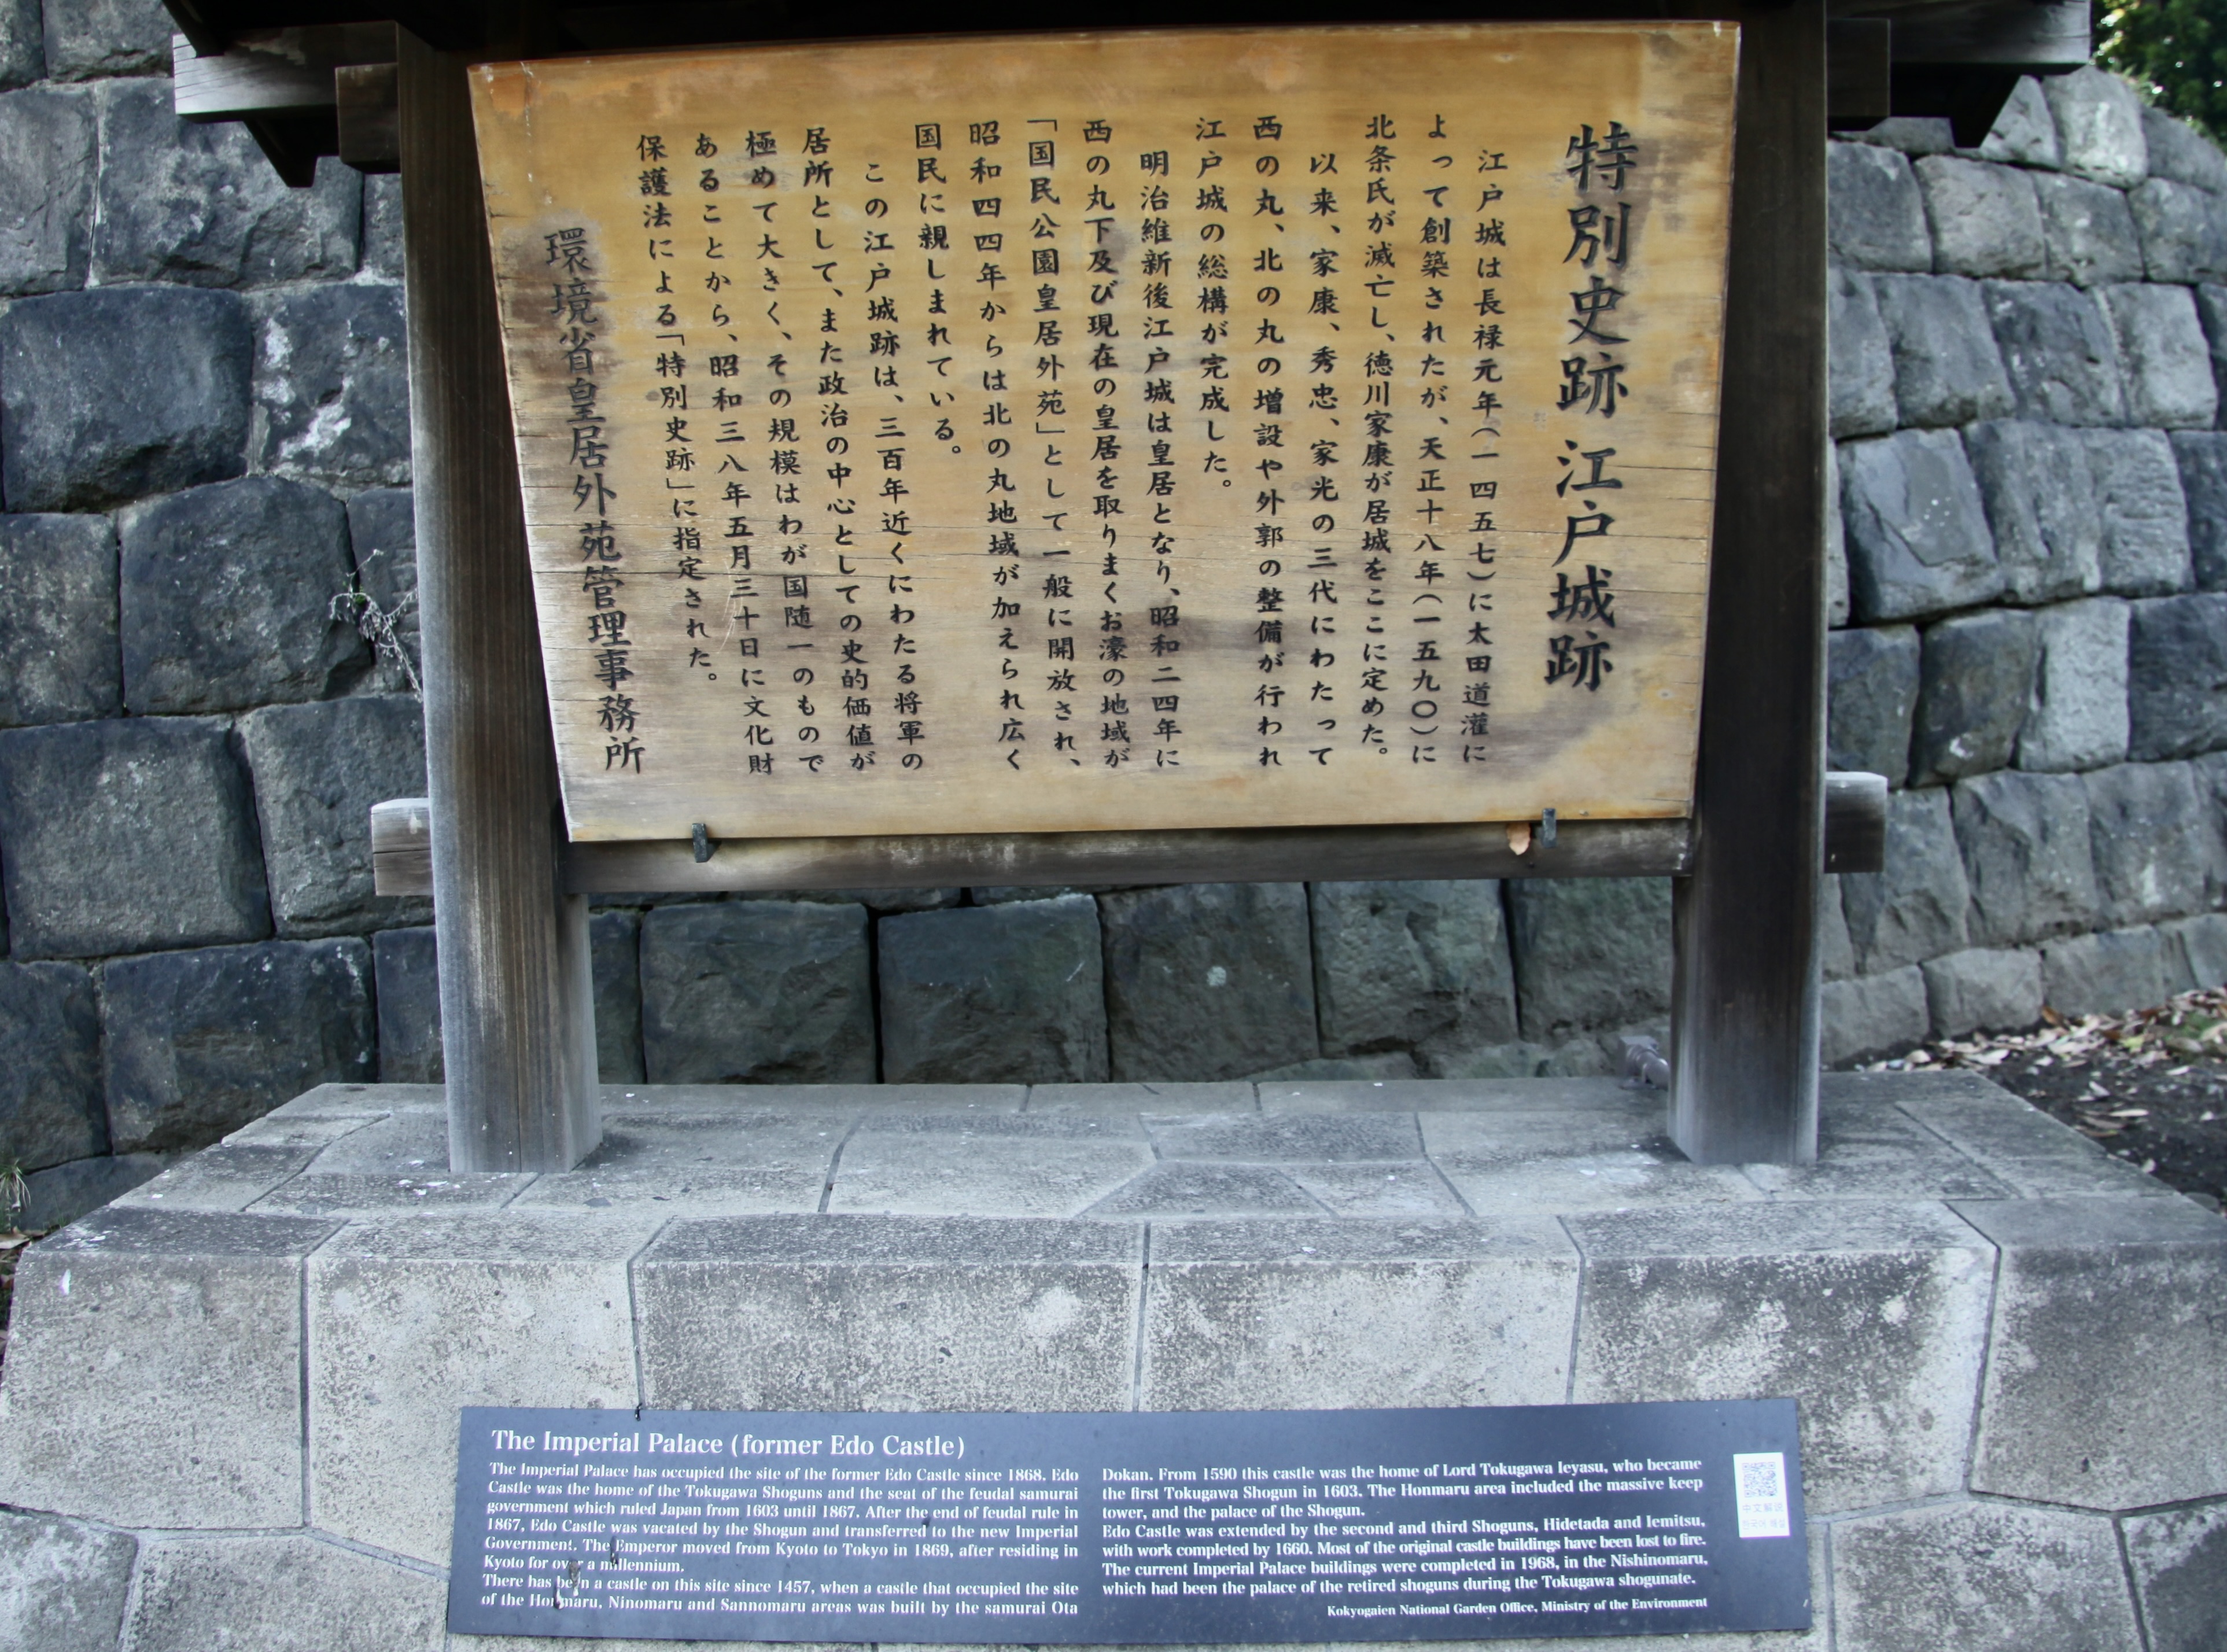 特別史跡 江戸城跡
江戸城は長禄元年(一四五七)に太田道灌に
よって創築されたが、天正十八年(一五九〇)に
北条氏が滅亡し、徳川家康が居城をここに定めた。
以来、家康、秀忠、家光の三代にわたって
西の丸、北の丸の増設や外郭の整備が行われ
江戸城の総構が完成した。
明治維新後江戸城は皇居となり、昭和二四年に
西の丸下及び現在の皇居を取りまくお濠の地域が
「国民公園皇居外苑」として一般に開放され、
昭和四四年からは北の丸地域が加えられ広く
国民に親しまれている。
この江戸城跡は、三百年近くにわたる将軍の
居所として、また政治の中心としての史的価値が
極めて大きく、その規模はわが国随一のもので
あることから、昭和三八年五月三十日に文化財
保護法による「特別史跡」に指定された。
環境省皇居外苑管理事務所
The Imperial Palace (former Edo Castle)
The Imperial Palace has occupied the site of the former Edo Castle since 1868. Edo
Castle was the home of the Tokugawa Shoguns and the seat of the feudal samurai
government which ruled Japan from 1603 until 1867. After the end of feudal rule in
1867, Edo Castle was vacated by the Shogun and transferred to the new Imperial
Government. The Emperor moved from Kyoto to Tokyo in 1869, after residing in
Kyoto for over a millennium.
There has been a castle on this site since 1457, when a castle that occupied the site
of the Honmaru, Ninomaru and Sannomaru areas was built by the samurai Ota
Dokan. From 1590 this castle was the home of Lord Tokugawa Ieyasu, who became
the first Tokugawa Shogun in 1603. The Honmaru area included the massive keep
tower, and the palace of the Shogun.
Edo Castle was extended by the second and third Shoguns, Hidetada and Iemitsu,
with work completed by 1660. Most of the original castle buildings have been lost to fire.
The current Imperial Palace buildings were completed in 1968, in the Nishinomaru,
which had been the palace of the retired shoguns during the Tokugawa shogunate.
Kokyogaien National Garden Office, Ministry of the Environment
中文解说